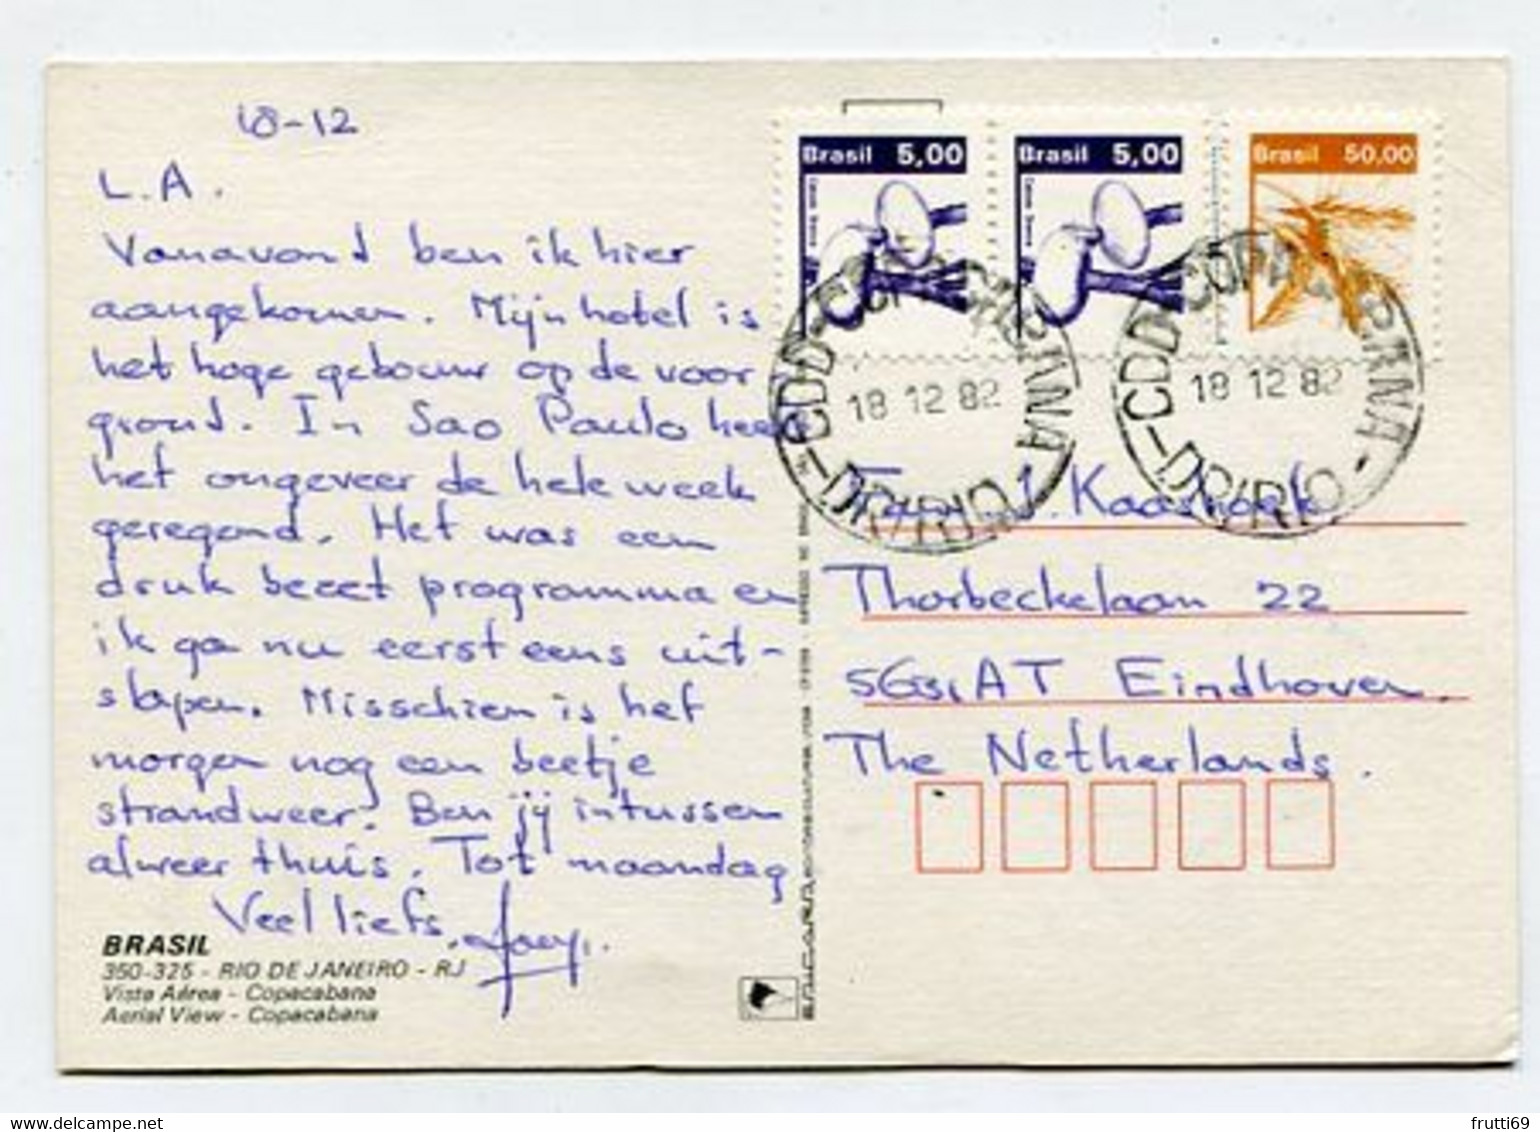 18-12
L.A.
Vanavond ben ik hier
aangekomen. Mijn hotel is
het hoge gebouw op de voor
grond. In Sao Paulo heeft
het ongeveer de hele week
geregend. Het was een
druk bezet programma en
ik ga nu eerst eens uit-
slapen. Misschien is het
morgen nog een beetje
strandweer. Ben jij intussen
alweer thuis. Tot maandag
Veel liefs,
BRASIL
350-325 - RIO DE JANEIRO - RJ
Vista Aérea - Copacabana
Aerial View - Copacabana
Brasil 5,00
Brasil 5,00
Brasil 50,00
18 12 82
18 12 82
Fam. J. Kaashoek
Thorbeckelaan 22
5631 AT Eindhoven.
The Netherlands.
delcampe.net
frutti69